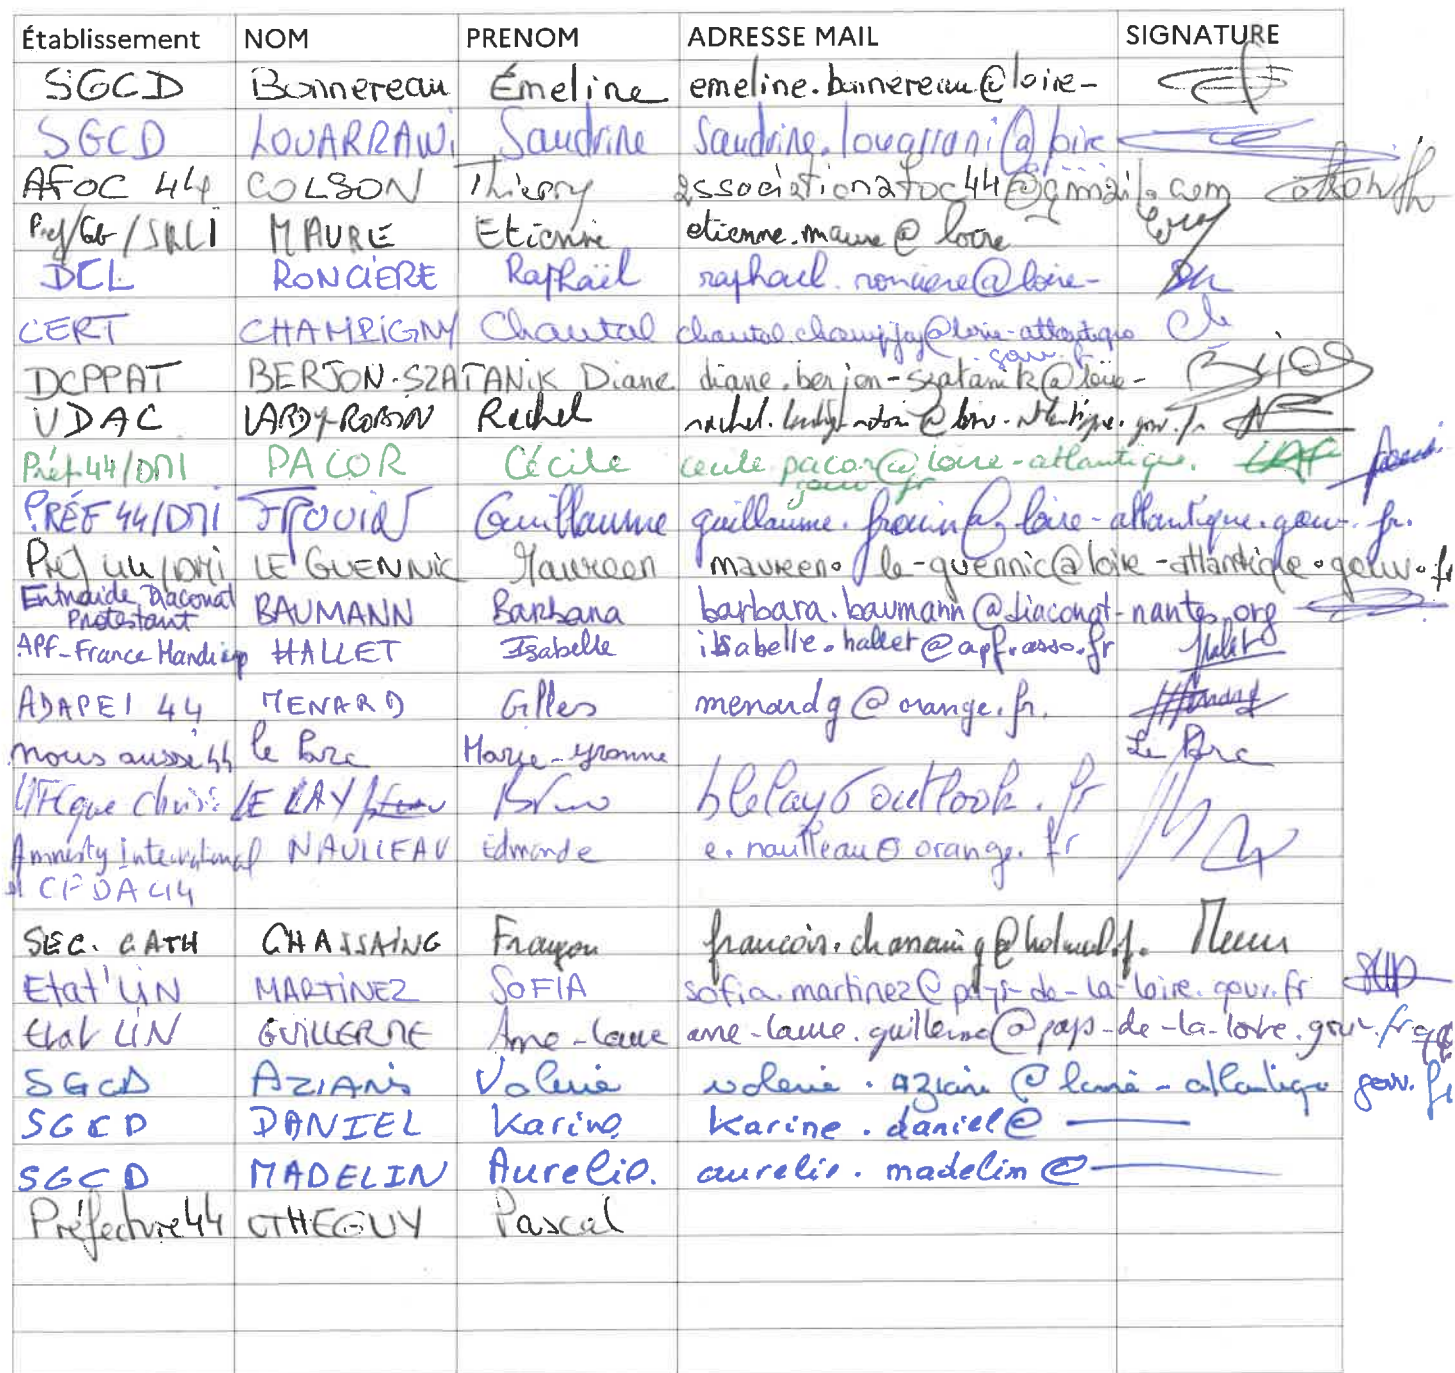 Établissement NOM PRENOM ADRESSE MAIL SIGNATURE
SGCD Bonnereau Émeline emeline.bonnereau@loire-
SGCD LOUARRANI Sandrine sandrine.louarrani@loire
AFOC 44 COLSON Thierry associationafoc44@gmail.com
MAURE Etienne etienne.maure@loire
DCL RONCIERE Raphaël raphael.ronciere@loire-
CERT CHAMPIGNY Chantal chantal.champigny@loire-atlantique
gouv.fr
DCPPAT BERJON-SZATANIK Diane diane.berjon-szatanik@loire-
UDAC LARDY-ROBIN Rachel
Préf 44/DMI PACOR Cécile cecile.pacor@loire-atlantique.
gouv.fr
PRÉF 44/DMI FROUIN Guillaume guillaume.frouin@loire-atlantique.gouv.fr.
Préf 44/DMI LE GUENNIC Maureen maureen.le-guennic@loire-atlantique.gouv.fr
Entraide Diaconat
Protestant BAUMANN Barbara barbara.baumann@diaconat-nantes.org
APF-France Handicap HALLET Isabelle isabelle.hallet@apf.asso.fr
ADAPEI 44 MENARD Gilles menardg@orange.fr.
nous aussi 44 le Brc Marie-yvonne Le Brc
UFC que choisir LE LAY Bruno blelay@outlook.fr
Amnesty international NAULLEAU Edmonde e.naulleau@orange.fr
CFDA 44
SEC. CATH CHASSAING François francois.chassaing@hotmail.f.
Etat'LIN MARTINEZ SOFIA sofia.martinez@pays-de-la-loire.gouv.fr
Etat LIN GUILLERME Anne-Laure anne-laure.guillerme@pays-de-la-loire.gouv.fr
SGCD AZIANI Valerie valerie.aziani@loire-atlantique gouv.fr
SGCD DANIEL Karine Karine.daniel@
SGCD MADELIN Aurelie. aurelie.madelin@
Préfecture 44 OTHEGUY Pascal